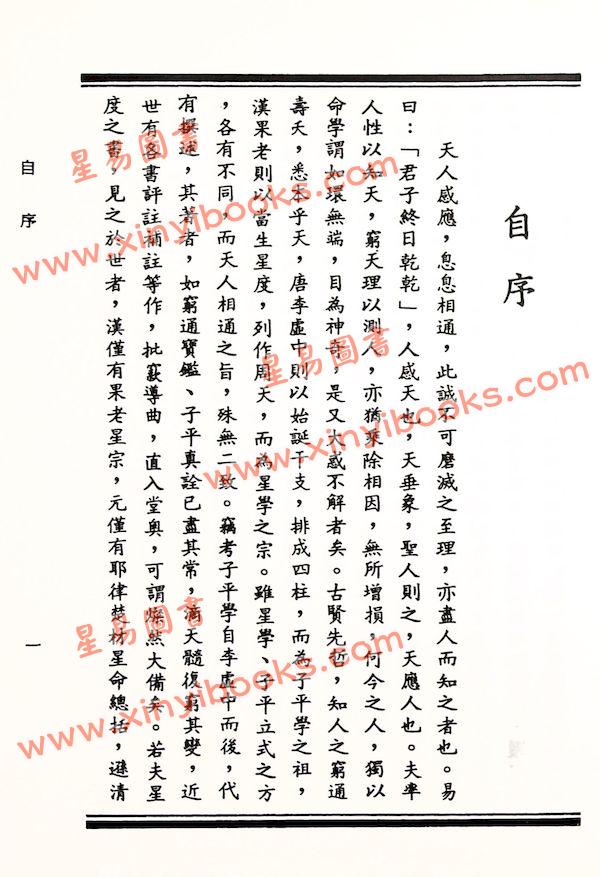 自序
天人感應，息息相通，此誠不可磨滅之至理，亦盡人而知之者也。易
曰：「君子終日乾乾」，人感天也，天垂象，聖人則之，天應人也。夫率
人性以知天，窮天理以測人，亦猶乘除相因，無所增損，何今之人，獨以
命學謂如環無端，目為神奇，是又大惑不解者矣。古賢先哲，知人之窮通
壽夭，悉本乎天，唐李虛中則以始誕干支，排成四柱，而為子平學之祖，
漢果老則以當生星度，列作周天，而為星學之宗。雖星學、子平立式之方
，各有不同，而天人相通之旨，殊無二致。竊考子平學自李虛中而後，代
有撰述，其著者，如窮通寶鑑、子平真詮已盡其常，滴天髓復窮其變，近
世有各書評註補註等作，批窾導曲，直入堂奧，可謂燦然大備矣。若夫星
度之書，見之於世者，漢僅有果老星宗，元僅有耶律楚材星命總括，遜清
自序
一
星易圖書
www.xinyibooks.com
星易圖書
www.xinyibooks.com
星易圖書
www.xinyibooks.com